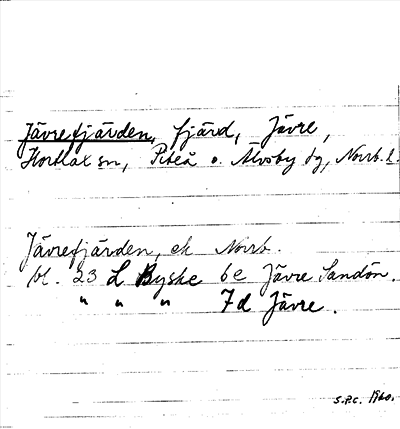 Jävrefjärden, fjärd, Jävre,
Hortlax sn, Piteå o. Älvsby tg, Norrb. l.
Jävrefjärden, ek Norrb.
bl. 23 L Byske 6e Jävre Sandön.
" " " 7d Jävre.
S.P.C. 1960.